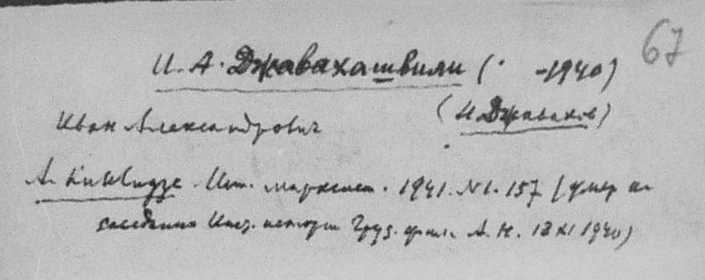 67
И. А. Джавахашвили ( -1940)
(И. Джавахов)
Иван Александрович
А. Киквидзе. Ист. марксист. 1941. №1. 157 (умер на
заседании Инст. истории Груз. фил. А. Н. 18 XI 1940)